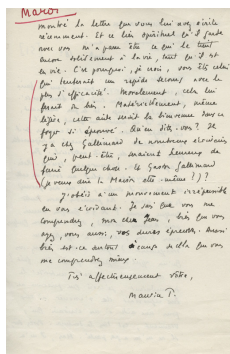 Maroi
montré la lettre que vous lui avez écrite
récemment. Et ce lien spirituel qu'il garde
avec vous m'a paru être ce qui le tient
encore solidement à la vie, tant qu'il est
en vie. C'est pourquoi, je crois, vous êtes celui
qui tenterait un rapide secours avec le
plus d'efficacité. Moralement, cela lui
ferait du bien. Matériellement, même
légère, cette aide serait la bienvenue dans ce
foyer si éprouvé. Qu'en dites-vous? Il
y a chez Gallimard de nombreux écrivains
qui, peut-être, seraient heureux de
faire quelque chose. Et Gaston Gallimard
(je veux dire la Maison elle-même)??
J'obéis à un mouvement irrépressible
en vous écrivant. Je sais que vous me
comprendrez, mon cher Jean, bien que vous
ayez, vous aussi, vos dures épreuves. Aussi
bien est-ce autant à cause de cela que vous
me comprendrez mieux.
Très affectueusement vôtre,
Maurice T.